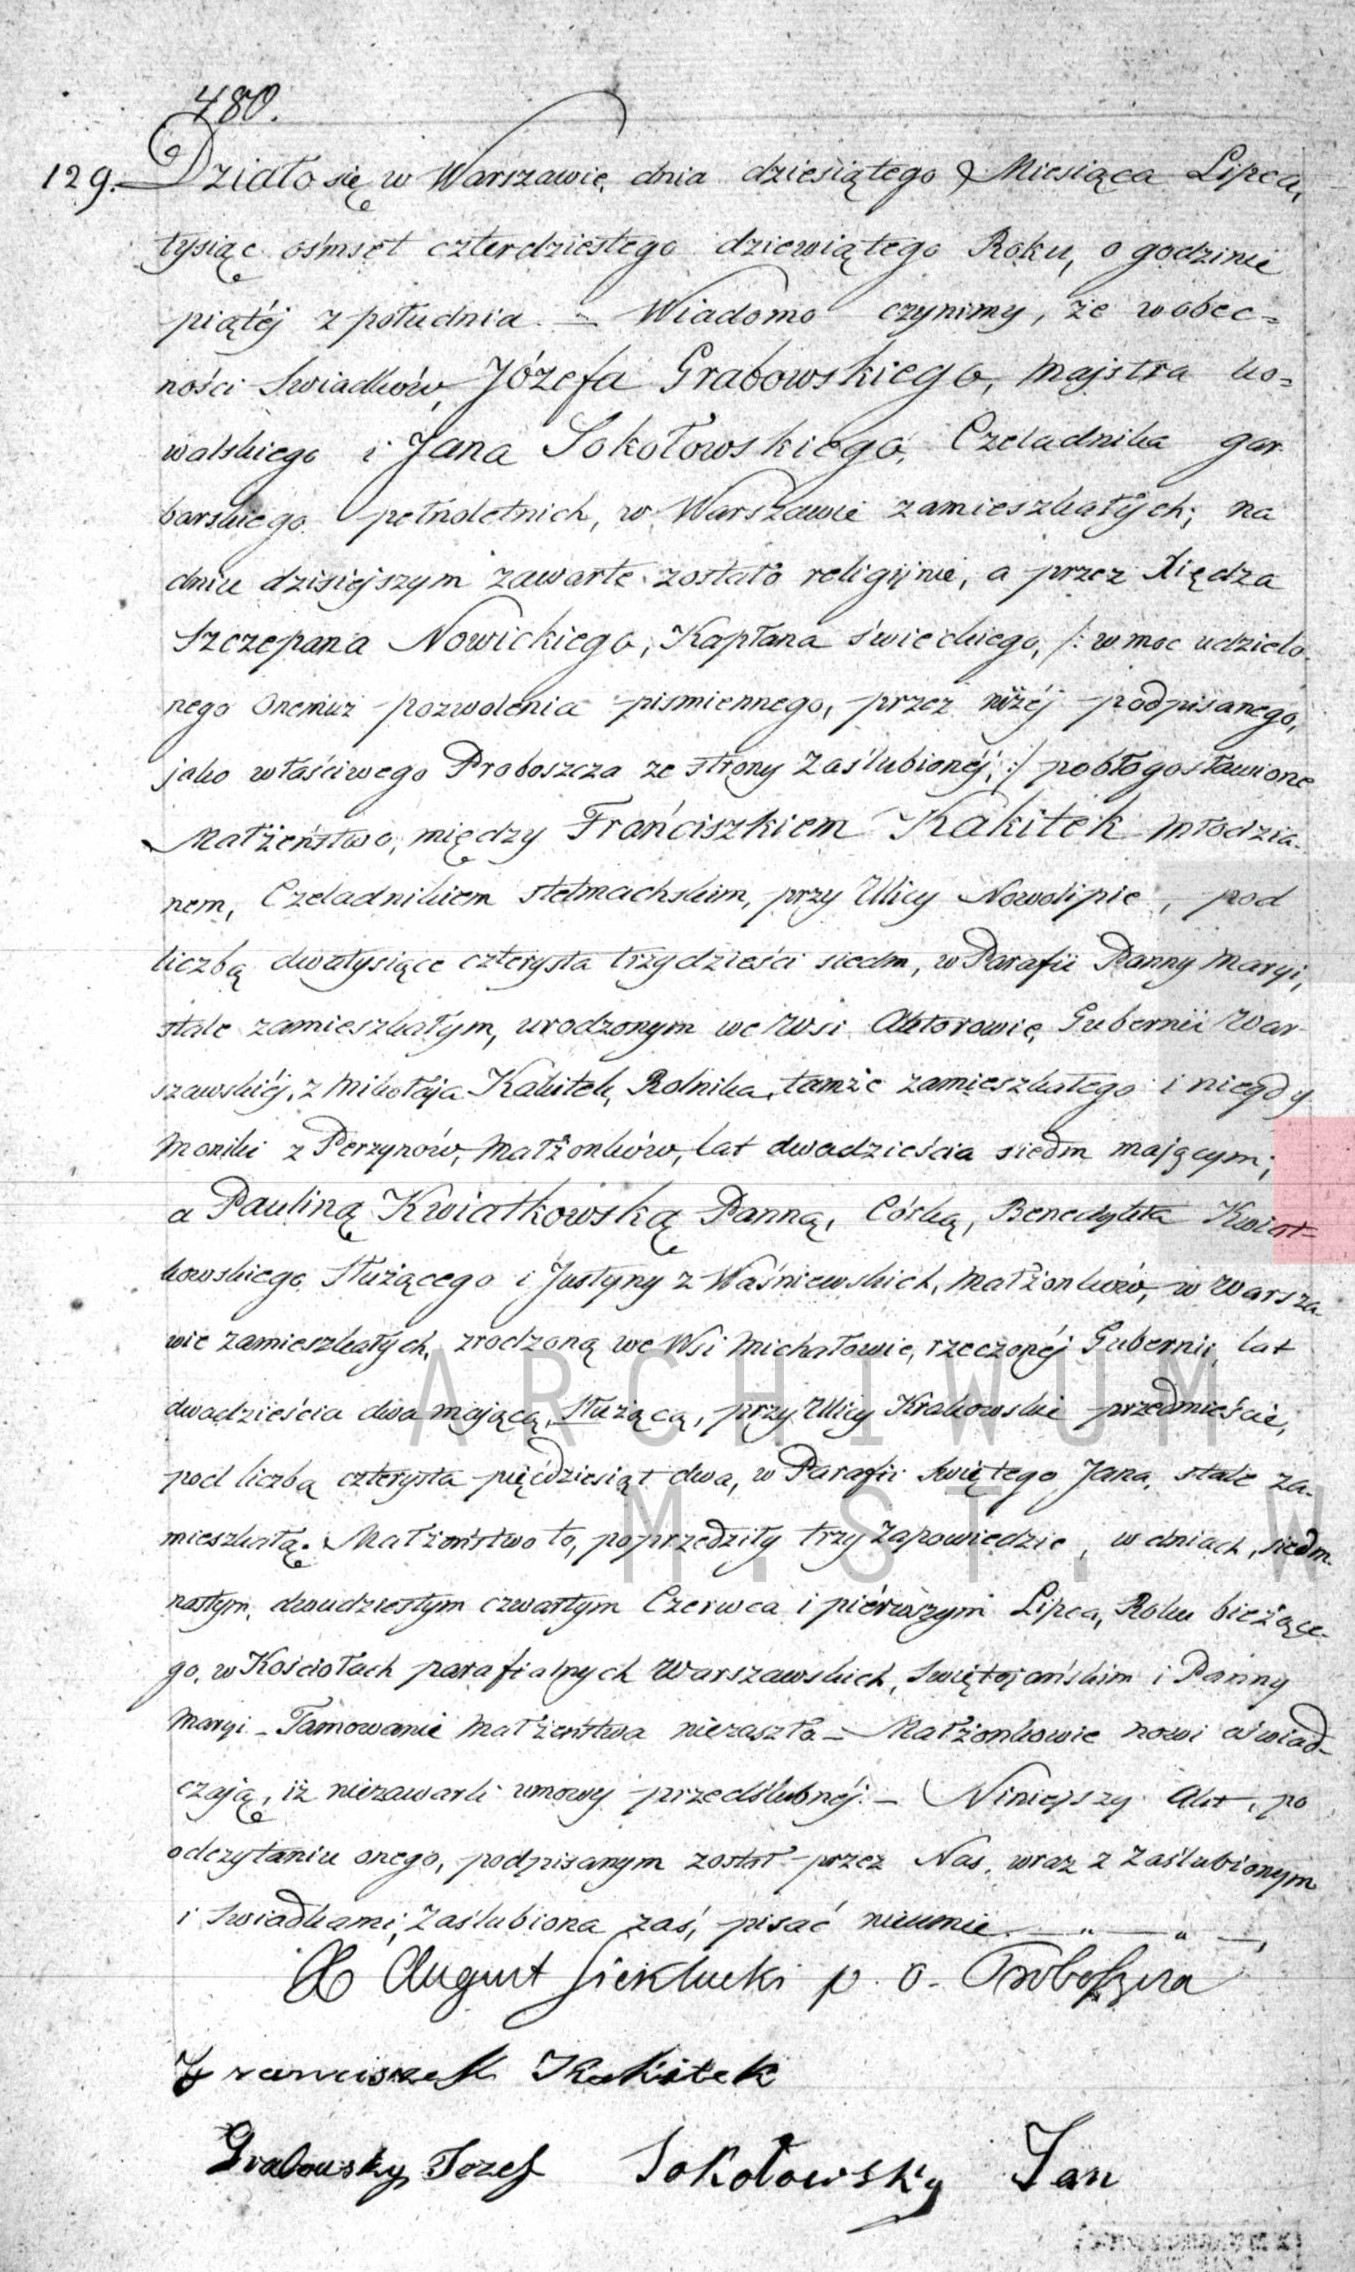 480.
129. Działo się w Warszawie, dnia dziesiątego Miesiąca Lipca,
tysiąc ośmset czterdziestego dziewiątego Roku, o godzinie
piątéj z południa. – Wiadomo czynimy, że w obec=
ności Swiadków, Józefa Grabowskiego, Majstra ko=
walskiego i Jana Sokołowskiego, Czeladnika gar=
barskiego pełnoletnich, w Warszawie zamieszkałych; na
dniu dzisiejszym zawarte zostało religijnie, a przez Xiędza
Szczepana Nowickiego, Kapłana świeckiego, /: w moc udzielo-
nego onemuż pozwolenia piśmiennego, przez niżéj podpisanego,
jako właściwego Proboszcza ze strony Zaślubionéj; :/ pobłogosławione
Małżeństwo, między Franciszkiem Kakitek Młodzia-
nem, Czeladnikiem stelmachskim, przy Ulicy Nowolipie, pod
liczbą dwatysiące czterysta trzydzieści siedm, w Parafii Panny Maryi,
stale zamieszkałym, urodzonym we Wsi Aktorowie, Gubernii War-
szawskiéj, z Mikołaja Kakitek, Rolnika, tamże zamieszkałego i niegdy
Moniki z Perzynów, Małżonków, lat dwadzieścia siedm mającym;
a Pauliną Kwiatkowską Panną, Córką, Benedykta Kwiat=
kowskiego Służącego i Justyny z Waśniewskich, Małżonków, w Warsza
wie zamieszkałych, zrodzoną we Wsi Michałowie, rzeczonéj Gubernii, lat
dwadzieścia dwa mającą, Służącą, przy Ulicy Krakowskie przedmieście,
pod liczbą czterysta pięćdziesiąt dwa, w Parafii Świętego Jana, stale za-
mieszkałą. Małżeństwo to, poprzedziły trzy Zapowiedzie, w dniach, siedm-
nastym, dwudziestym czwartym Czerwca i piérwszym Lipca, Roku bieżące-
go, w Kościołach parafialnych Warszawskich, Świętojańskim i Panny
Maryi – Tamowanie małżeństwa niezaszło – Małżonkowie nowi oświad-
czają, iż niezawarli umowy przedślubnéj. – Niniejszy Akt, po
odczytaniu onego, podpisanym został przez Nas, wraz z Zaślubionym
i Swiadkami; Zaślubiona zaś, pisać nieumie. – „ – „ –,
X August Sieklucki p. o. Proboszcza
Franciszek Kakitek
Grabowsky Jozef Sokołowsky Jan
ARCHIWUM
M. ST. W